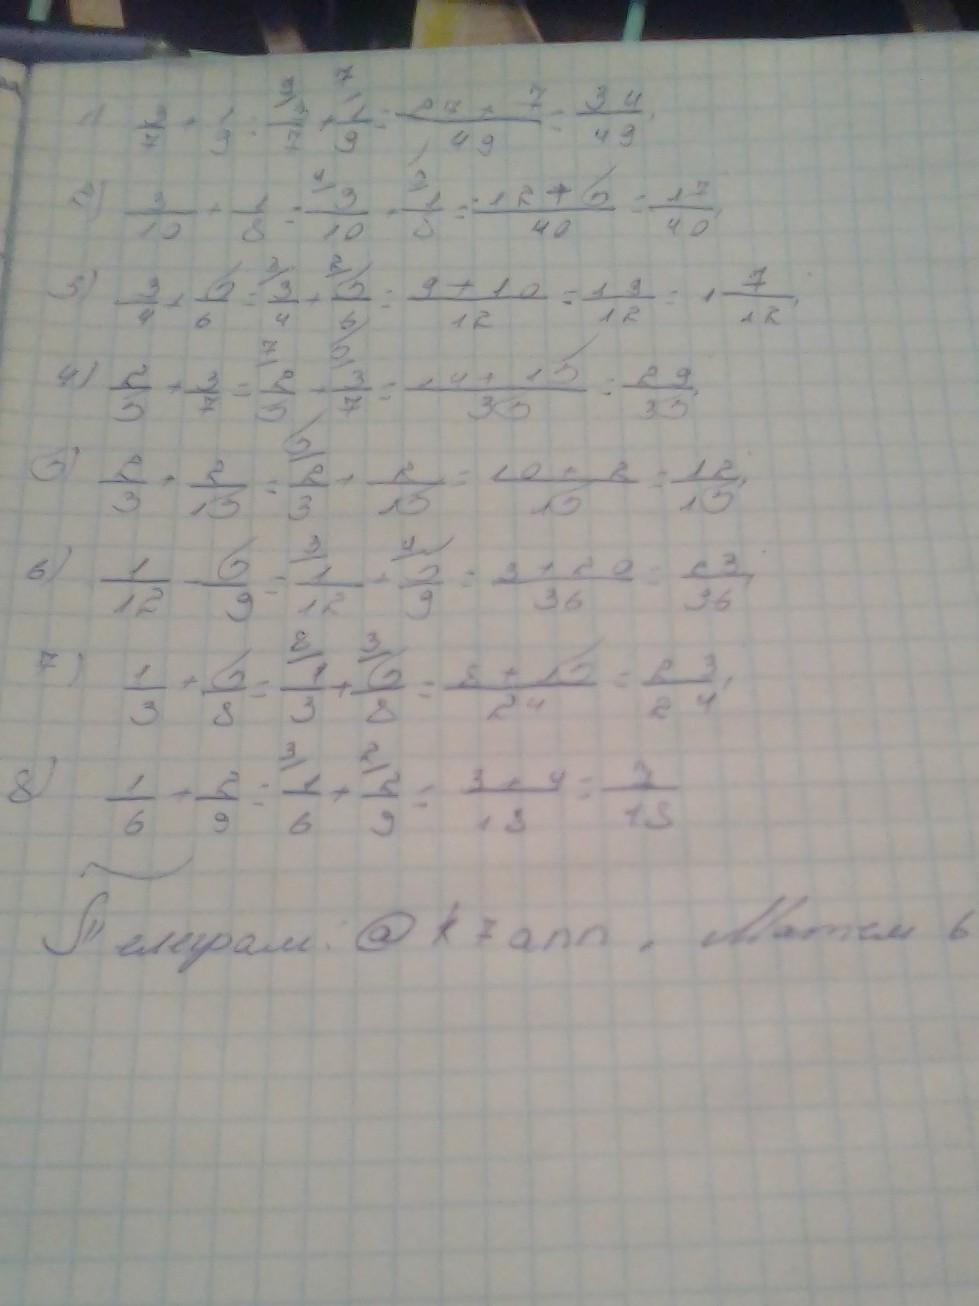 1) 3/7 + 1/9 = 9/ 3/7 + 7/ 1/9 = 27 + 7 / 49 = 34/49,
2) 3/10 + 1/8 = 4/ 3/10 + 5/ 1/8 = 12 + 5 / 40 = 17/40,
3) 3/4 + 5/6 = 3/ 3/4 + 2/ 5/6 = 9 + 10 / 12 = 19/12 = 1 7/12,
4) 2/5 + 3/7 = 7/ 2/5 + 5/ 3/7 = 14 + 15 / 35 = 29/35,
5) 2/3 + 2/15 = 5/ 2/3 + 2/15 = 10 + 2 / 15 = 12/15,
6) 1/12 + 5/9 = 3/ 1/12 + 4/ 5/9 = 3 + 20 / 36 = 23/36,
7) 1/3 + 5/8 = 8/ 1/3 + 3/ 5/8 = 8 + 15 / 24 = 23/24,
8) 1/6 + 2/9 = 3/ 1/6 + 2/ 2/9 = 3 + 4 / 18 = 7/18
Телеграм: @k7ann, Матем 6